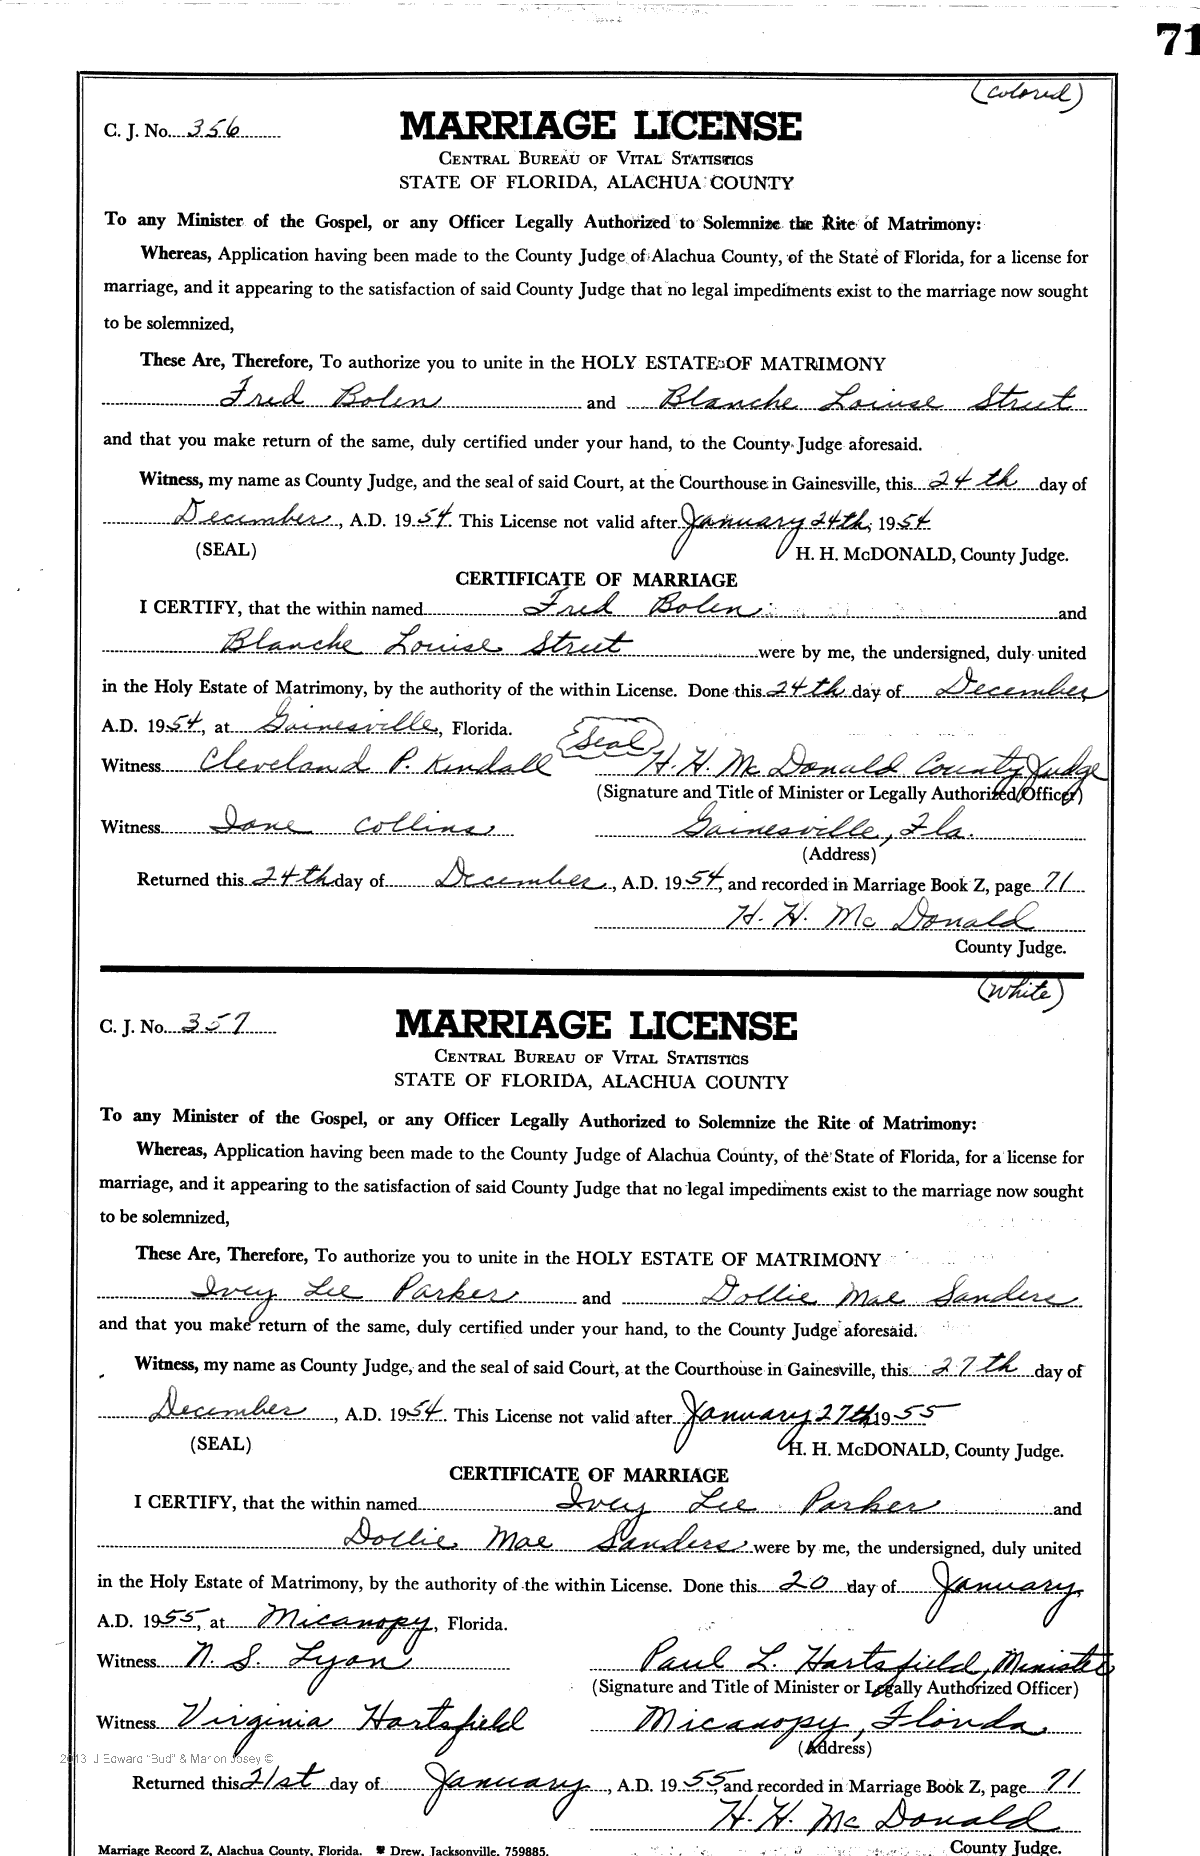 71
(colored)
C. J. No. 356
MARRIAGE LICENSE
CENTRAL BUREAU OF VITAL STATISTICS
STATE OF FLORIDA, ALACHUA COUNTY
To any Minister of the Gospel, or any Officer Legally Authorized to Solemnize the Rite of Matrimony:
Whereas, Application having been made to the County Judge of Alachua County, of the State of Florida, for a license for
marriage, and it appearing to the satisfaction of said County Judge that no legal impediments exist to the marriage now sought
to be solemnized,
These Are, Therefore, To authorize you to unite in the HOLY ESTATE OF MATRIMONY
Fred Bolen and Blanche Louise Street
and that you make return of the same, duly certified under your hand, to the County Judge aforesaid.
Witness, my name as County Judge, and the seal of said Court, at the Courthouse in Gainesville, this 24th day of
December, A.D. 1954. This License not valid after January 24th, 1954
(SEAL) H. H. McDONALD, County Judge.
CERTIFICATE OF MARRIAGE
I CERTIFY, that the within named Fred Bolen and
Blanche Louise Street were by me, the undersigned, duly united
in the Holy Estate of Matrimony, by the authority of the within License. Done this 24th day of December
A.D. 1954, at Gainesville, Florida.
(Seal)
Witness Cleveland P. Kendall H. H. Mc Donald County Judge
(Signature and Title of Minister or Legally Authorized Officer)
Witness Jane Collins Gainesville, Fla.
(Address)
Returned this 24th day of December, A.D. 1954, and recorded in Marriage Book Z, page 71
H. H. Mc Donald
County Judge.
(White)
C. J. No. 357
MARRIAGE LICENSE
CENTRAL BUREAU OF VITAL STATISTICS
STATE OF FLORIDA, ALACHUA COUNTY
To any Minister of the Gospel, or any Officer Legally Authorized to Solemnize the Rite of Matrimony:
Whereas, Application having been made to the County Judge of Alachua County, of the State of Florida, for a license for
marriage, and it appearing to the satisfaction of said County Judge that no legal impediments exist to the marriage now sought
to be solemnized,
These Are, Therefore, To authorize you to unite in the HOLY ESTATE OF MATRIMONY
Ivey Lee Parker and Dollie Mae Sanders
and that you make return of the same, duly certified under your hand, to the County Judge aforesaid.
Witness, my name as County Judge, and the seal of said Court, at the Courthouse in Gainesville, this 27th day of
December, A.D. 1954. This License not valid after January 27th 1955
(SEAL) H. H. McDONALD, County Judge.
CERTIFICATE OF MARRIAGE
I CERTIFY, that the within named Ivey Lee Parker and
Dollie Mae Sanders were by me, the undersigned, duly united
in the Holy Estate of Matrimony, by the authority of the within License. Done this 20 day of January
A.D. 1955, at Micanopy, Florida.
Witness N. S. Lyon Paul L. Hartsfield, Minister
(Signature and Title of Minister or Legally Authorized Officer)
Witness Virginia Hartsfield Micanopy, Florida
(Address)
2013 J Edward "Bud" & Marion Josey ©
Returned this 21st day of January, A.D. 1955 and recorded in Marriage Book Z, page 71
H. H. Mc Donald
County Judge.
Marriage Record Z, Alachua County, Florida. Drew, Jacksonville, 759885.